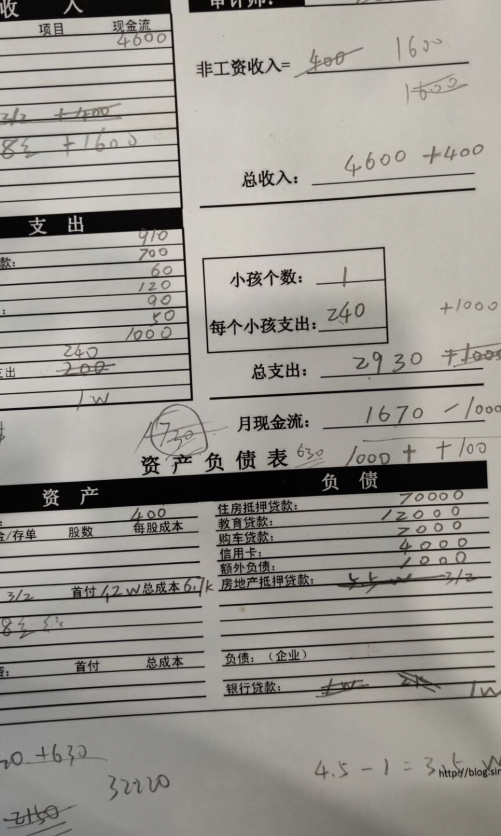 收 入
审计师:
项目 现金流
4600
3/2 +400
+1600
非工资收入= 400 1600
1600
总收入: 4600 +400
支 出
910
款: 700
60
120
: 90
50
1000
240
支出 200
1W
小孩个数: 1
每个小孩支出: 240
+1000
总支出: 2930 +1000
4730
月现金流: 1670 -1000
630 1000 + +100
资产负债表
资 产
400
金/存单 股数 每股成本
3/2 首付 总成本
首付 总成本
负 债
住房抵押贷款: 70000
教育贷款: 12000
购车贷款: 7000
信用卡: 4000
额外负债: 1000
房地产抵押贷款: 5.5W 3/2
负债:(企业)
银行贷款: 1W 2W 1W
20 +630
32220
2150
4.5 - 1 = 3.5 W
http://blog.sin